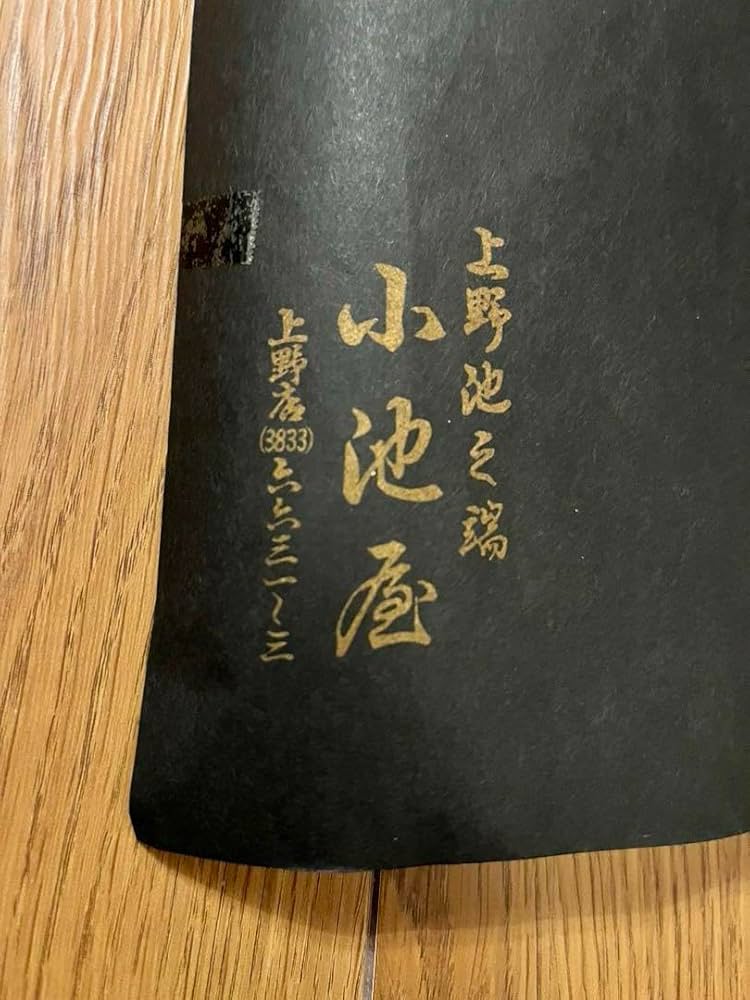 上野池之端
小池屋
上野店(3833)六六三一〜三